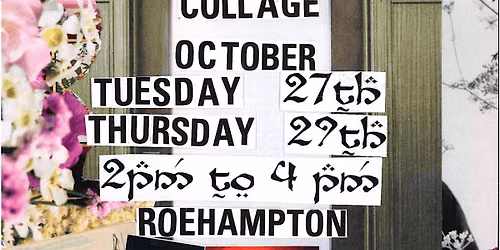 COLLAGE
OCTOBER
TUESDAY 27th
THURSDAY 29th
2pm to 4 pm
ROEHAMPTON